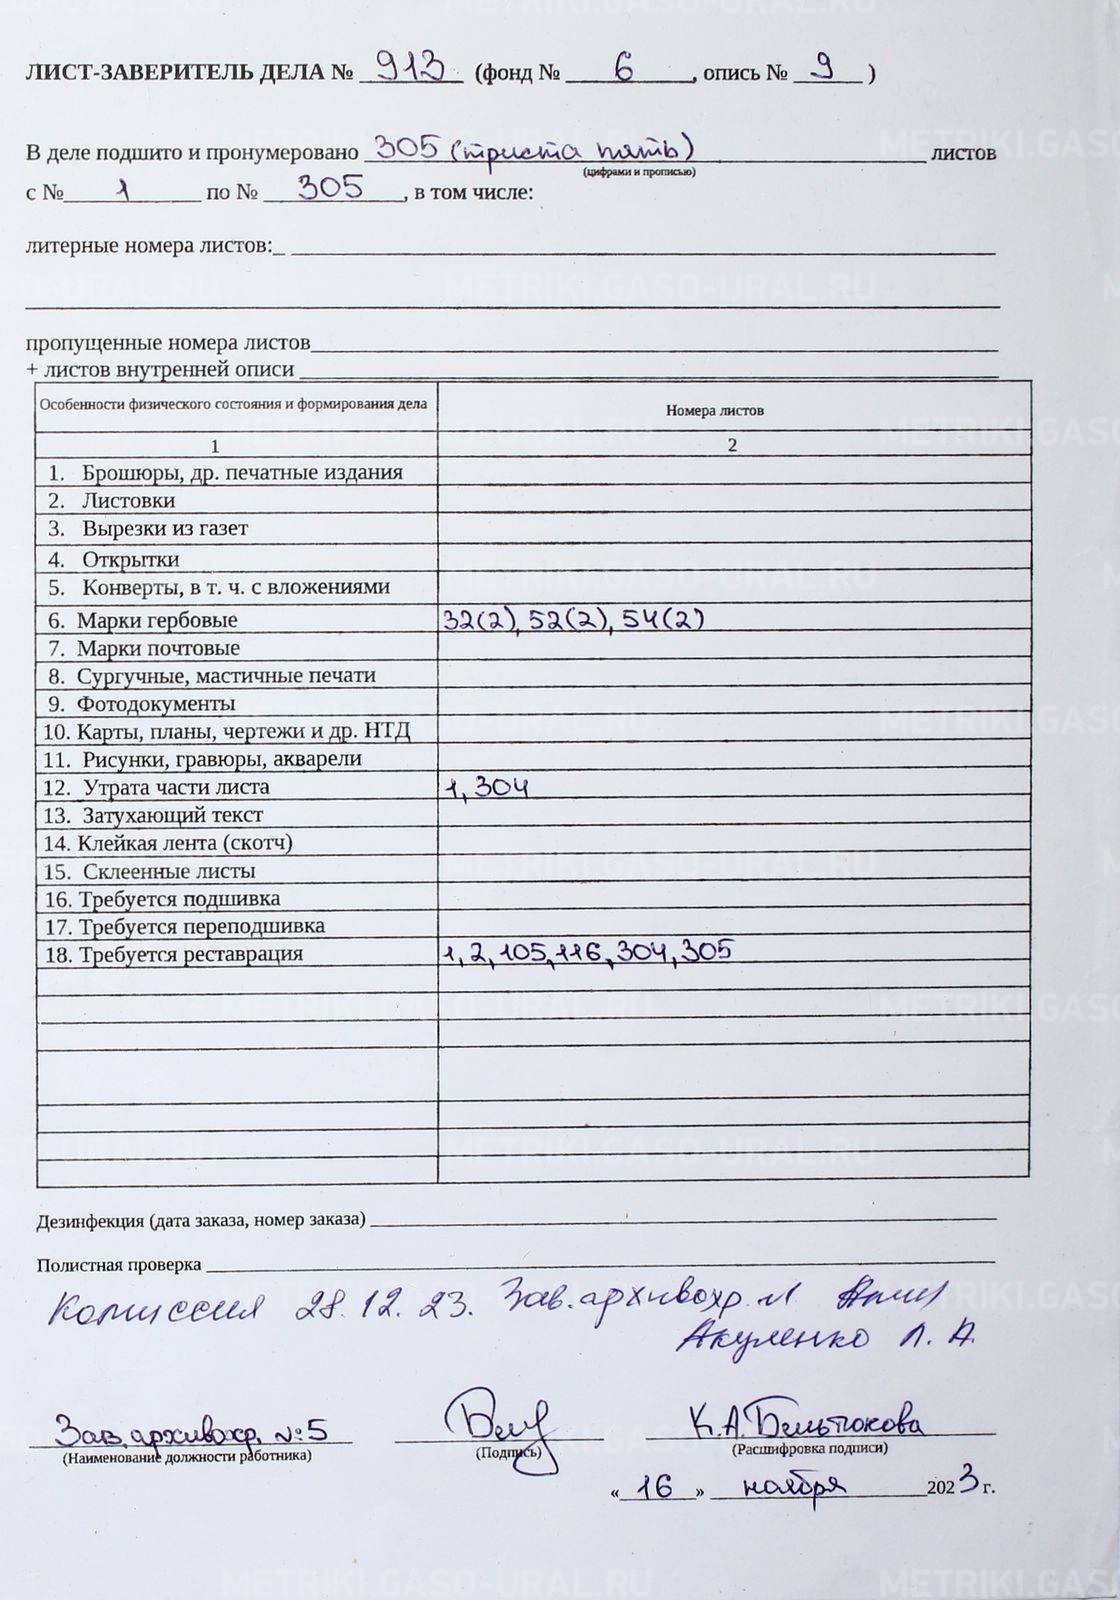 ЛИСТ-ЗАВЕРИТЕЛЬ ДЕЛА № 913 (фонд № 6, опись № 9)
В деле подшито и пронумеровано 305 (триста пять) листов
(цифрами и прописью)
с № 1 по № 305, в том числе:
литерные номера листов:
пропущенные номера листов
+ листов внутренней описи
Особенности физического состояния и формирования дела Номера листов
1 2
1. Брошюры, др. печатные издания
2. Листовки
3. Вырезки из газет
4. Открытки
5. Конверты, в т. ч. с вложениями
6. Марки гербовые 32(2), 52(2), 54(2)
7. Марки почтовые
8. Сургучные, мастичные печати
9. Фотодокументы
10. Карты, планы, чертежи и др. НТД
11. Рисунки, гравюры, акварели
12. Утрата части листа 1, 304
13. Затухающий текст
14. Клейкая лента (скотч)
15. Склеенные листы
16. Требуется подшивка
17. Требуется переподшивка
18. Требуется реставрация 1, 2, 105, 116, 304, 305
Дезинфекция (дата заказа, номер заказа)
Полистная проверка
Комиссия 28.12.23. Зав. архивохр.
Акуленко Л. А.
Зав. архивохр. №5 К.А. Бельтюкова
(Наименование должности работника) (Подпись) (Расшифровка подписи)
«16» ноября 2023 г.
METRIKI.GASO-URAL.RU